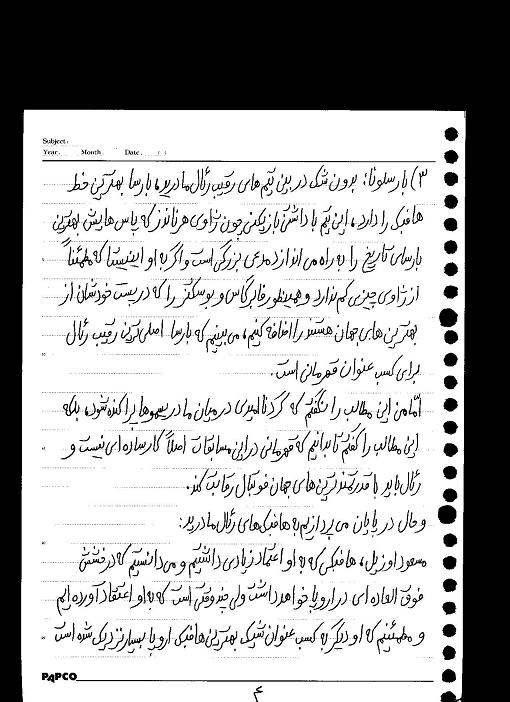 Subject:
Year. Month. Date. ( )
۳) بارسلونا: بدون شک در بین تیم های رقیب رئال مادرید، بارسا بهترین خط
هافبک را دارد، این تیم با داشتن بازیکنی چون ژاوی هرناندز که پاس هایش بهترین
بارسای تاریخ را به راه می اندازد مدعی بزرگی است و اگر به او اینیستا که مطمئناً
از ژاوی چیزی کم ندارد و همینطور فابرگاس و بوسکتز را که در پست خودشان از
بهترین های جهان هستند را اضافه کنیم، می بینیم که بارسا اصلی ترین رقیب رئال
برای کسب عنوان قهرمانی است.
امّا من این مطالب را نگفتم که گرد ناامیدی در میان مادریسموها پراکنده شود، بلکه
این مطالب را گفتم تا بدانیم که قهرمانی در این مسابقات اصلاً کار ساده ای نیست و
رئال باید با قدرتمندترین های جهان فوتبال رقابت کند.
و حال در پایان می پردازیم به هافبک های رئال مادرید:
مسعود اوزیل، هافبکی که به او اعتماد زیادی داشتیم و می دانستیم که درخشش
فوق العاده ای در اروپا خواهد داشت ولی چند وقتی است که به او اعتقاد آورده ایم
و مطمئنیم که او دیگر به کسب عنوان شیک بهترین هافبک اروپا بسیار نزدیک شده است
PAPCO
۴